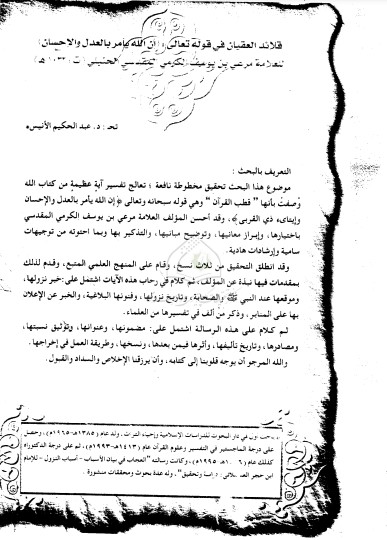 قلائد العقيان في قوله تعالى إن الله يأمر بالعدل والإحسان
للعلامة مرعي بن يوسف الكرمي المقدسي الحنبلي (ت ١٠٣٣ هـ)
تحـ : د. عبد الحكيم الأنيس
التعريف بالبحث :
موضوع هذا البحث تحقيق مخطوطة نافعة ؛ تعالج تفسير آية عظيمة من كتاب الله
وُصفت بأنها " قطب القرآن " وهي قوله سبحانه وتعالى ﴿إن الله يأمر بالعدل والإحسان
وإيتاء ذي القربى﴾ ، وقد أحسن المؤلف العلامة مرعي بن يوسف الكرمي المقدسي
باختيارها، وإبراز معانيها، وتوضيح مبانيها، والتذكير بها وبما احتوته من توجيهات
سامية وإرشادات هادية.
وقد انطلق التحقيق من ثلاث نسخ، وقام على المنهج العلمي المتبع، وقدم لذلك
بمقدمات فيها نبذة عن المؤلف، ثم كلام في رحاب هذه الآيات اشتمل على: خبر نزولها،
وموقعها عند النبي ﷺ والصحابة، وتاريخ نزولها، وفنونها البلاغية، والخبر عن الإعلان
بها على المنابر، وذكر من ألف في تفسيرها من العلماء.
ثم كلام على هذه الرسالة اشتمل على: مضمونها، وعنوانها، وتوثيق نسبتها،
ومصادرها، وتاريخ تأليفها، وأثرها فيمن بعدها، ونسخها، وطريقة العمل في إخراجها.
والله المرجو أن يوجه قلوبنا إلى كتابه، وأن يرزقنا الإخلاص والسداد والقبول.
أول في دار البحوث للدراسات الإسلامية وإحياء التراث، ولد عام (١٣٨٥هـ-١٩٦٥م)، وحصل
على درجة الماجستير في التفسير وعلوم القرآن عام (١٤١٣هـ-١٩٩٣م)، ثم على درجة الدكتوراه
كذلك عام ١٩٩٥م)، وكانت رسالته "العجاب في بيان الأسباب- أسباب النزول - للإمام
ابن حجر العسقلاني: دراسة وتحقيق" ، وله عدة بحوث ومحققات منشورة .